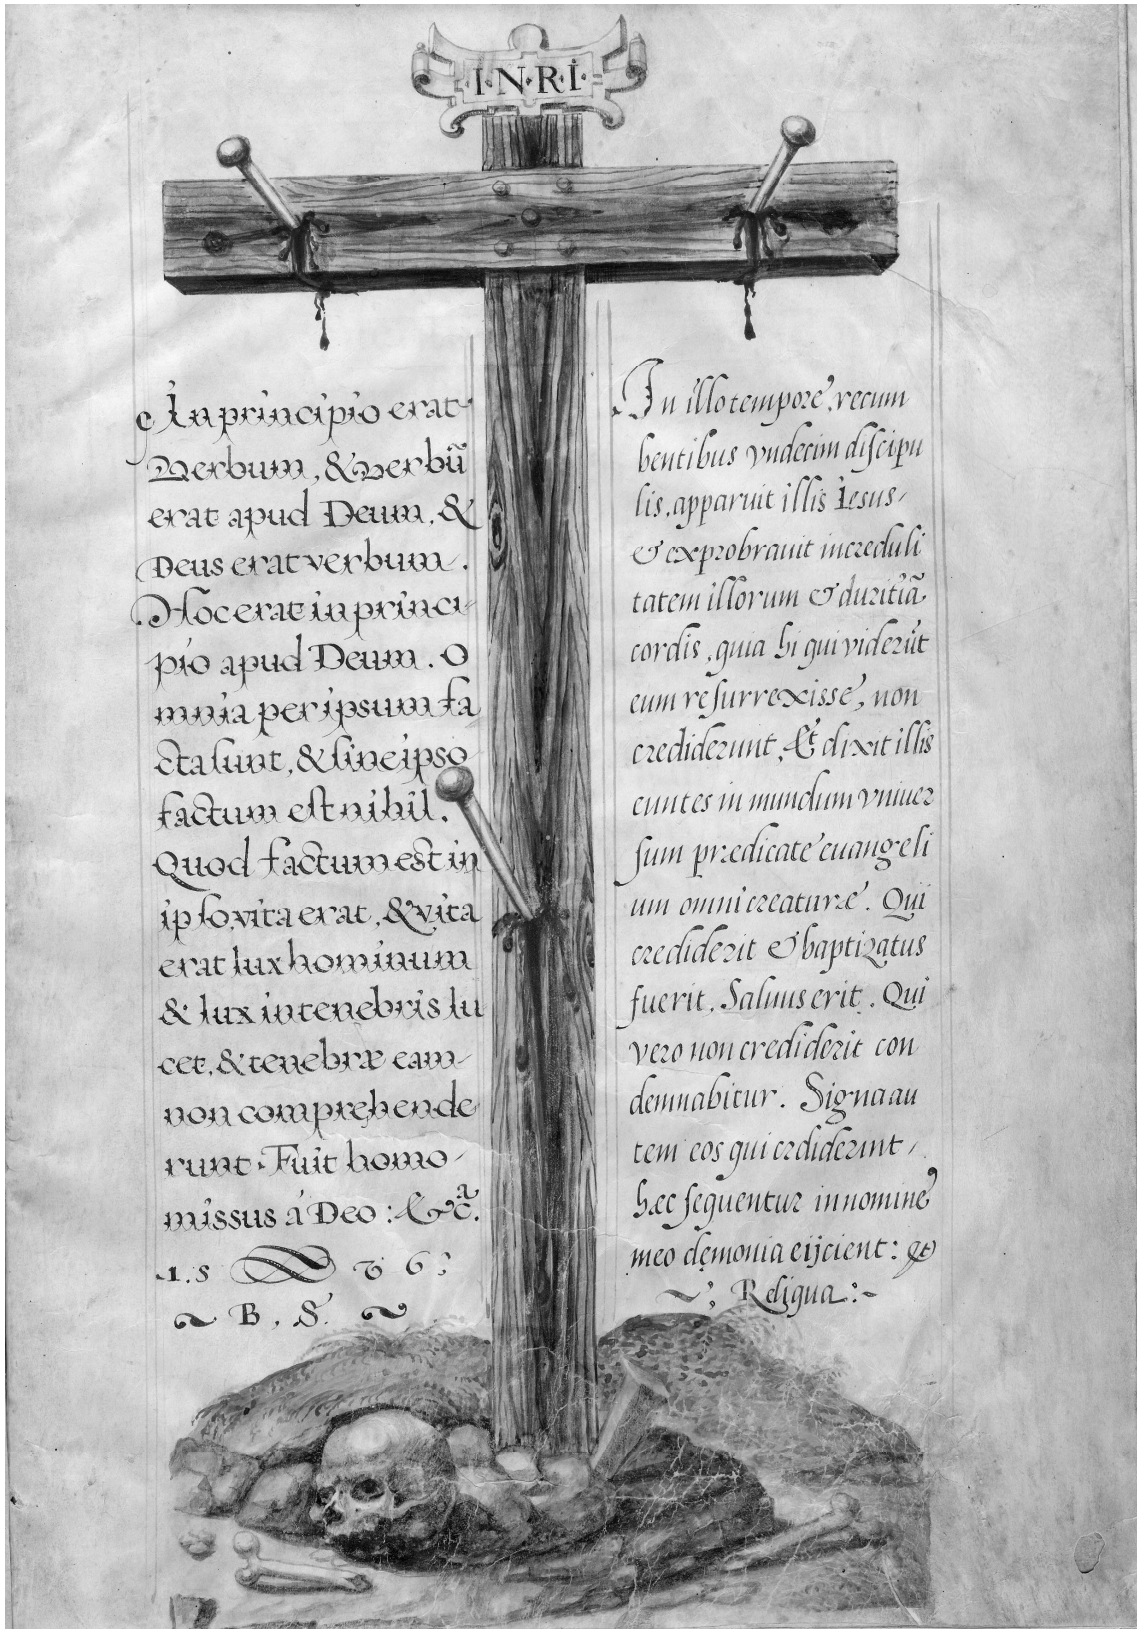 ·I·N·R·I·
In principio erat
Verbum, & Verbũ
erat apud Deum, &
Deus erat verbum.
Hoc erat in princi-
pio apud Deum. O
mnia per ipsum fa
cta sunt, & sine ipso
factum est nihil.
Quod factum est in
ipso, vita erat, & vita
erat lux hominum
& lux in tenebris lu
cet, & tenebræ eam-
non comprehende
runt. Fuit homo-
missus á Deo: &c̃.
.1.5 7 6;
~ B. S. ~
In illo tempore, recum
bentibus vndecim discipu
lis, apparuit illis Iesus-
& exprobrauit increduli
tatem illorum & duritiã
cordis, quia hi qui viderũt
eum resurrexisse, non
crediderunt, Et dixit illis
euntes in mundum vniuer
sum prædicate euangeli
um omni creaturæ. Qui
crediderit & baptizatus
fuerit, Saluus erit. Qui
vero non crediderit con
demnabitur. Signa au
tem eos qui crdiderint-
hæc sequentur in nomine
meo dęmonia eijcient: &
~; Reliqua:~